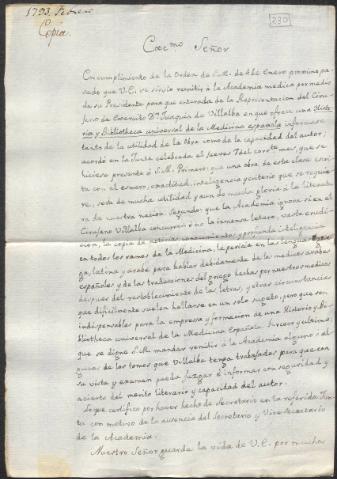 1793. Febrero
230
Copia.
Exc.mo Señor
En cumplimiento de la Orden de S.M. de de Enero proximo pa-
sado que V.E. se sirvió remitir á la Academia medica por medio
de su Presidente para que enterada de la Representacion del Ciru-
jano de Exercito D.n Joaquin de Villalba en que ofrece una Histo-
ria y Bibliotheca universal de la Medicina española informase
tanto de la utilidad de la Obra como de la capacidad del autor;
acordó en la Junta celebrada el Jueves 7 del corr.te mes, que se
hiciese presente á S.M. Primero: que una obra de esta clase escri-
ta con el esmero, exactitud, inteligencia y criterio que se requie-
re, seria de mucha utilidad y aun de mucha gloria á la literatu-
ra de nuestra nacion. Segundo: que la Academia ignora si en el
Cirujano Villalba concurren ó no la inmensa letura, vasta erudi-
cion, la copia de noticias, conocimientos y profunda inteligencia
en todos los ramos de la Medicina, la pericia en las lenguas Grie-
ga, latina y arabe para hablar debidamente de los medicos arabes
españoles y de las traducciones del griego hechas por nuestros medicos
despues del restablecimiento de las letras, y otras circunstancias
que dificilmente suelen hallarse en un solo sujeto, pero que son
indispensables para la empresa y formacion de una Historia y Bi-
bliotheca universal de la Medicina Española. Tercero y ultimo:
que se digne S.M. mandar remitir á la Academia alguno ó al-
gunos de los tomos que Villalba tenga trabajados para que con
su vista y examen pueda juzgar é informar con seguridad y
acierto del merito literario y capacidad del autor.
Lo que certifico por haver hecho de Secretario en la referida Jun-
ta con motivo de la ausencia del Secretario y Vice-Secretario
de la Academia.
Nuestro Señor guarde la vida de V.E. por muchos